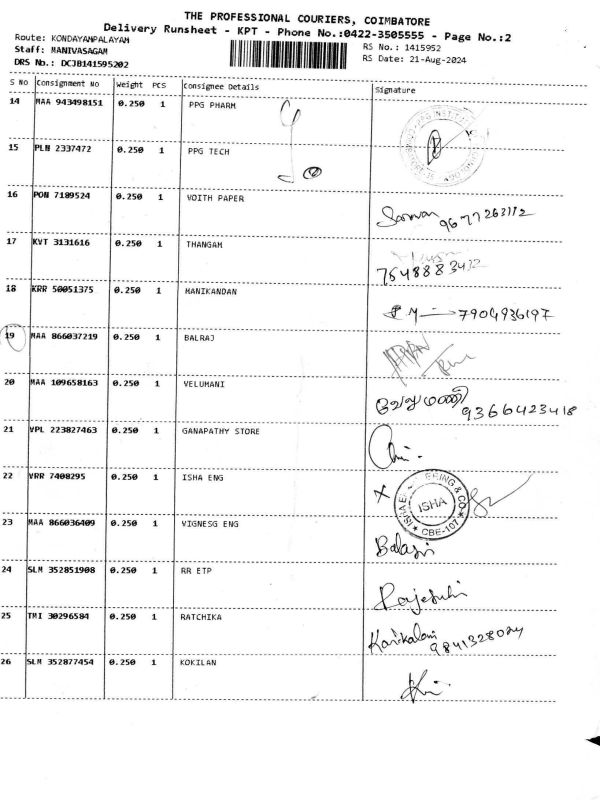 THE PROFESSIONAL COURIERS, COIMBATORE
Delivery Runsheet - KPT - Phone No.:0422-3505555 - Page No.:2
Route: KONDAYAMPALAYAM
Staff: MANIVASAGAM
DRS No.: DCJB141595202
RS No.: 1415952
RS Date: 21-Aug-2024
S No Consignment No Weight PCS Consignee Details Signature
14 MAA 943498151 0.250 1 PPG PHARM
15 PLN 2337472 0.250 1 PPG TECH
16 PON 7189524 0.250 1 VOITH PAPER
9677263112
17 KVT 3131616 0.250 1 THANGAM
7548883412
18 KRR 50051375 0.250 1 MANIKANDAN
7904936197
19 MAA 866037219 0.250 1 BALRAJ
20 MAA 109658163 0.250 1 VELUMANI
வேலுமணி
9366423418
21 VPL 223827463 0.250 1 GANAPATHY STORE
22 VRR 7408295 0.250 1 ISHA ENG
ISHA
CBE-107
23 MAA 866036409 0.250 1 VIGNESG ENG
Balaji
24 SLM 352851908 0.250 1 RR ETP
25 TMI 30296584 0.250 1 RATCHIKA
Karikalan
9841328024
26 SLM 352877454 0.250 1 KOKILAN